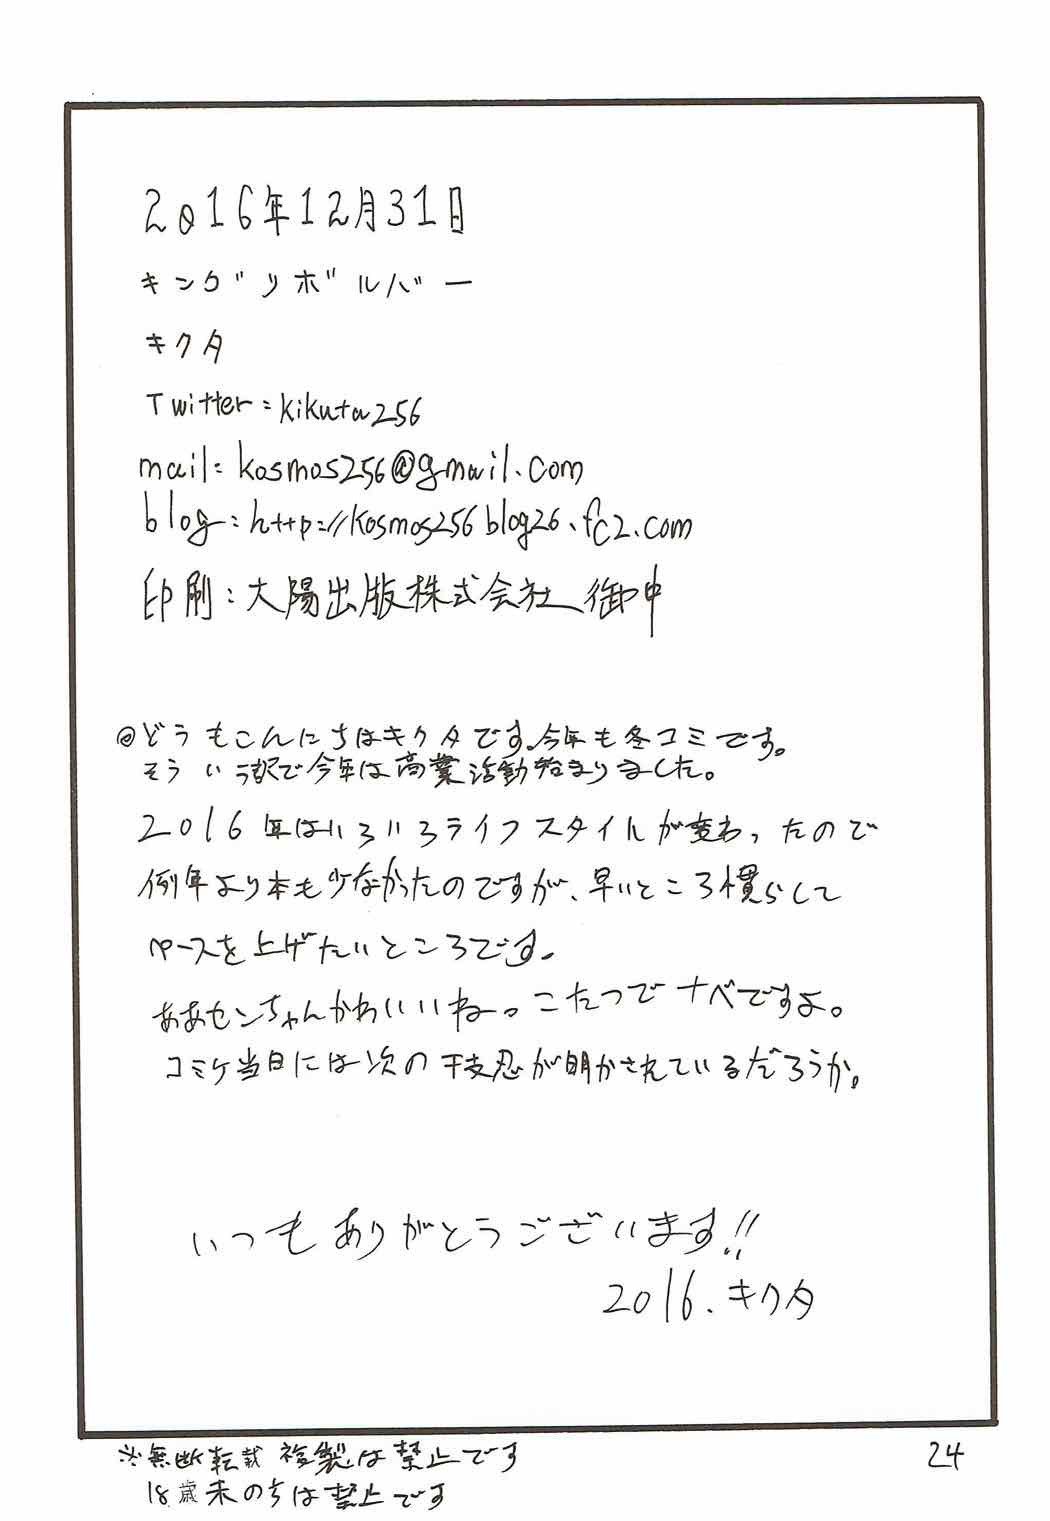 2016年12月31日
キングリボルバー
キクタ
Twitter:kikuta256
mail:kosmos256@gmail.com
blog:http://kosmos256blog26.fc2.com
印刷:大陽出版株式会社 御中
@どうもこんにちはキクタです。今年も冬コミです。
そういう訳で今年は商業活動始まりました。
2016年はいろいろライフスタイルが変わったので
例年より本も少なかったのですが、早いところ慣らして
ペースを上げたいところです。
ああセンちゃんかわいいね。こたつでナベですよ。
コミケ当日には次の干支忍が明かされているだろうか。
いつもありがとうございます!!
2016.キクタ
※無断転載複製は禁止です
18歳未のちは禁止です
24